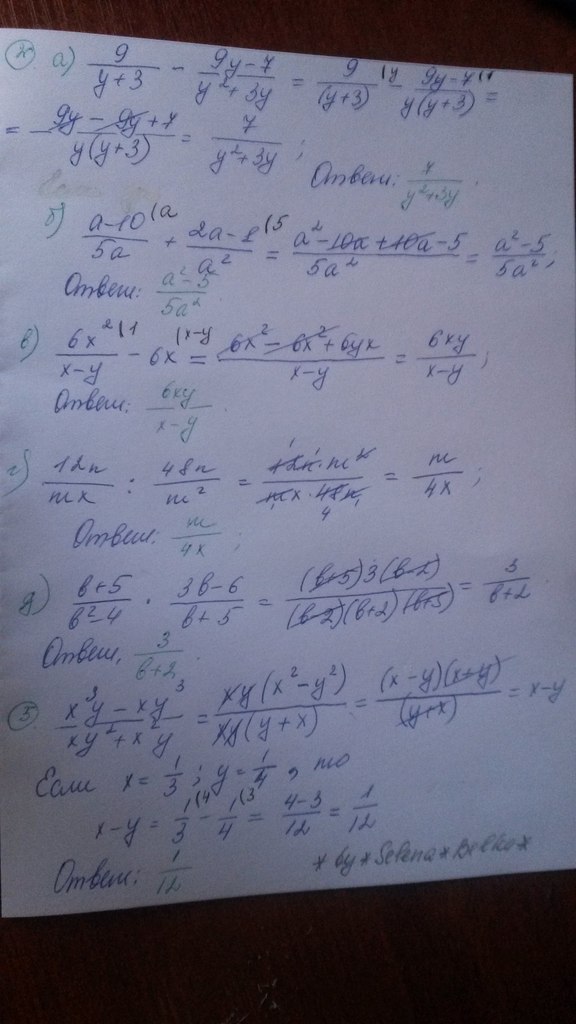 4. а) 9/(y+3) - (9y-7)/(y²+3y) = 9/(y+3) (y - (9y-7)/(y(y+3)) (1 =
= (9y - 9y + 7)/(y(y+3)) = 7/(y²+3y);
Ответ: 7/(y²+3y).
б) (a-10)/5a (a + (2a-1)/a² (5 = (a²-10a+10a-5)/5a² = (a²-5)/5a²;
Ответ: (a²-5)/5a².
в) 6x²/(x-y) (1 - 6x (x-y = (6x²-6x²+6yx)/(x-y) = 6xy/(x-y);
Ответ: 6xy/(x-y).
г) 12n/mx : 48n/m² = (12n·m²)/(mx·48n) = m/4x;
Ответ: m/4x;
д) (b+5)/(b²-4) · (3b-6)/(b+5) = ((b+5)3(b-2))/((b-2)(b+2)(b+5)) = 3/(b+2).
Ответ. 3/(b+2).
5. (x³y - xy³)/(xy²+x²y) = xy(x²-y²)/xy(y+x) = (x-y)(x+y)/(y+x) = x-y
Если x = 1/3; y = 1/4, то
x-y = 1/3 (4 - 1/4 (3 = (4-3)/12 = 1/12
* by * Selena * Belko *
Ответ: 1/12